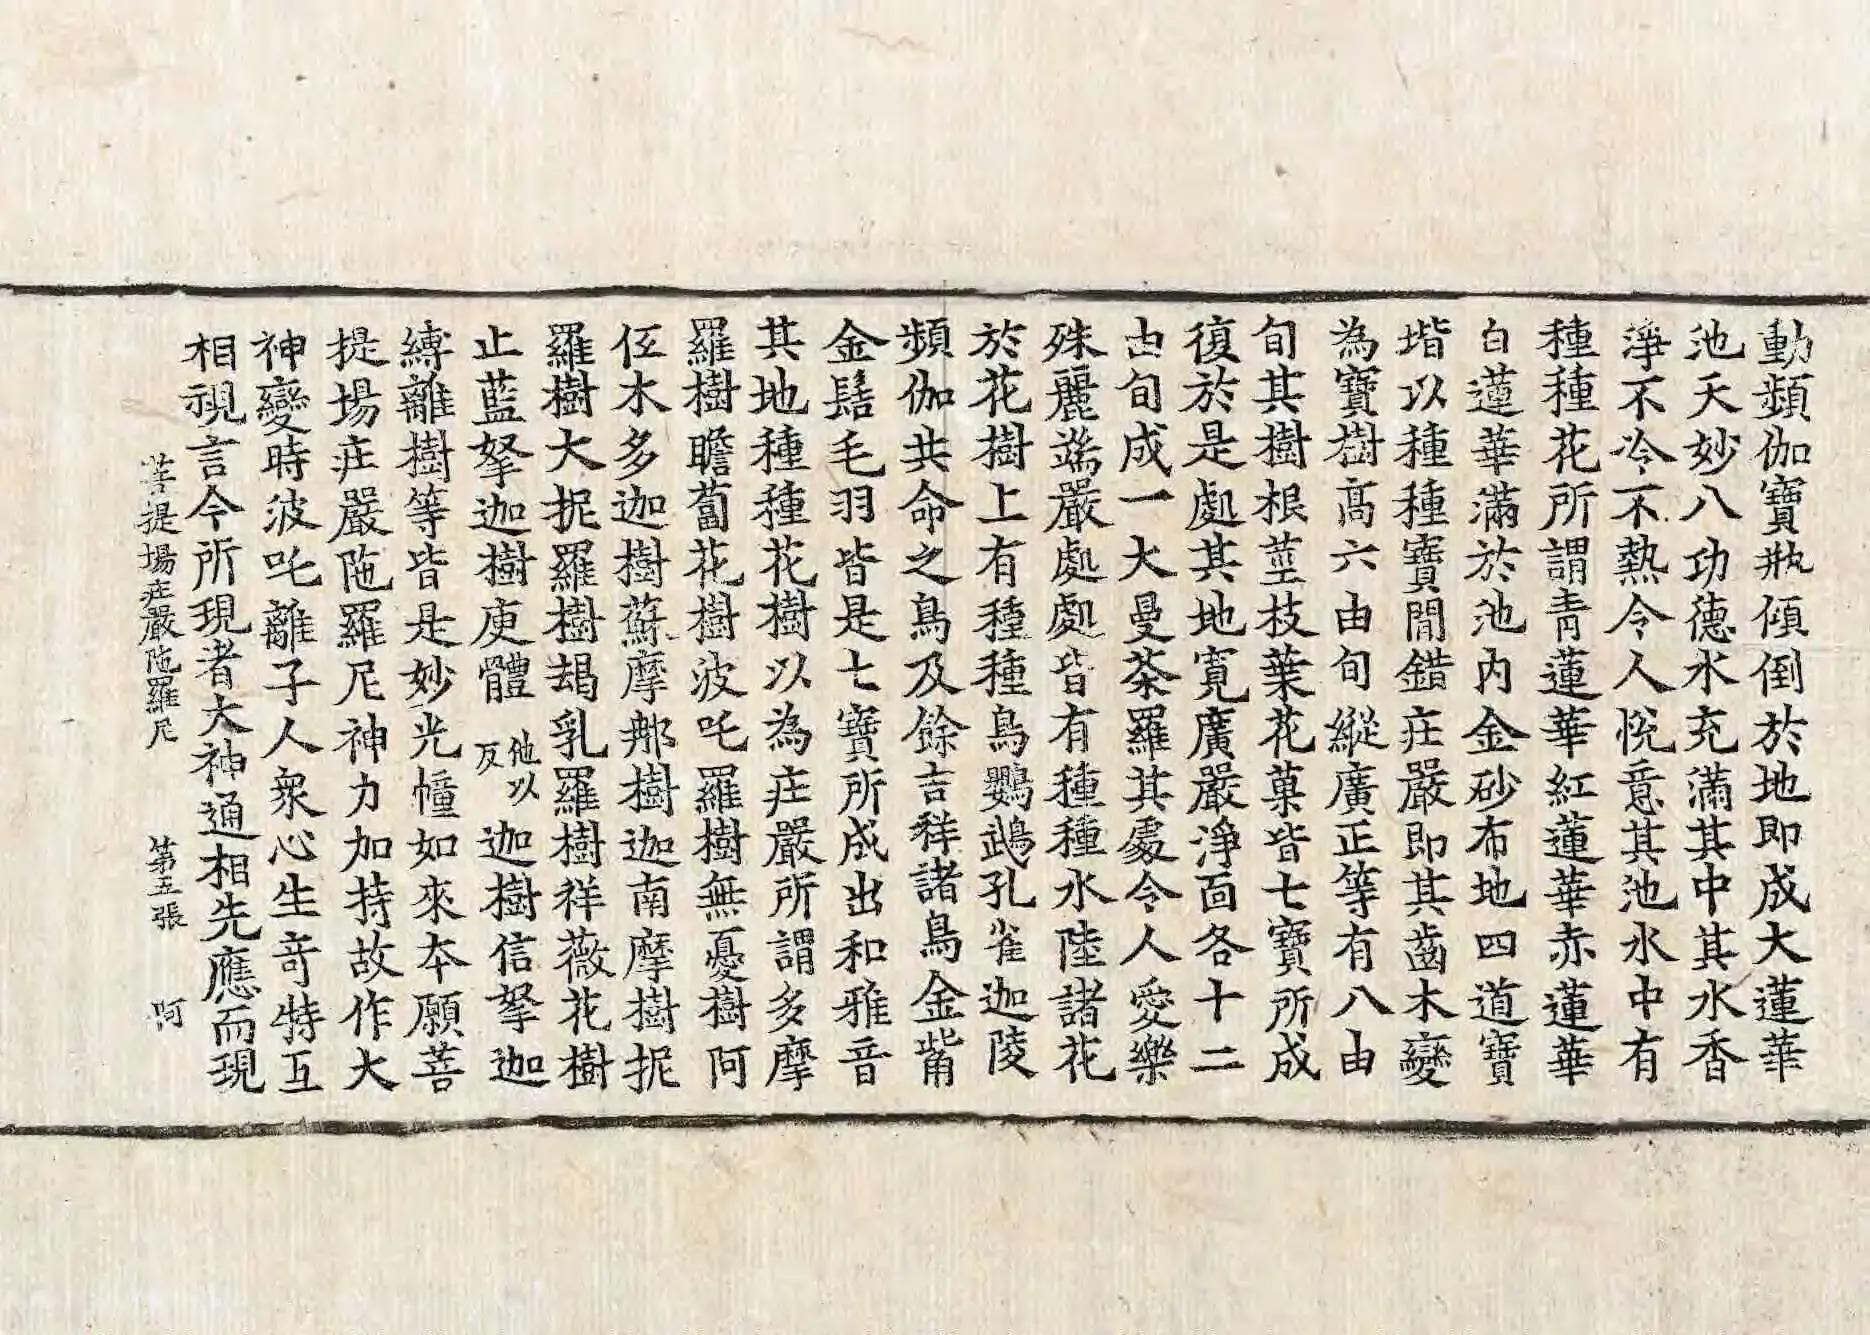 動頻伽寶瓶傾倒於地即成大蓮華
池天妙八功德水充滿其中其水香
淨不冷不熱令人悅意其池水中有
種種花所謂青蓮華紅蓮華赤蓮華
白蓮華滿於池內金砂布地四道寶
堦以種種寶間錯庄嚴即其齒木變
為寶樹高六由旬縱廣正等有八由
旬其樹根莖枝葉花菓皆七寶所成
復於是處其地寬廣嚴淨面各十二
由旬成一大曼荼羅其處令人愛樂
殊麗端嚴處處皆有種種水陸諸花
於花樹上有種種鳥鸚鵡孔雀迦陵
頻伽共命之鳥及餘吉祥諸鳥金觜
金髻毛羽皆是七寶所成出和雅音
其地種種花樹以為庄嚴所謂多摩
羅樹瞻蔔花樹波吒羅樹無憂樹阿
伾木多迦樹蘇摩那樹迦南摩樹抳
羅樹大抳羅樹朅乳羅樹祥薇花樹
止藍拏迦樹庾體他以反迦樹信拏迦
縛離樹等皆是妙光幢如來本願菩
提場庄嚴陁羅尼神力加持故作大
神變時波吒離子人衆心生奇特互
相視言今所現者大神通相先應而現
菩提場庄嚴陁羅尼 第五張 阿